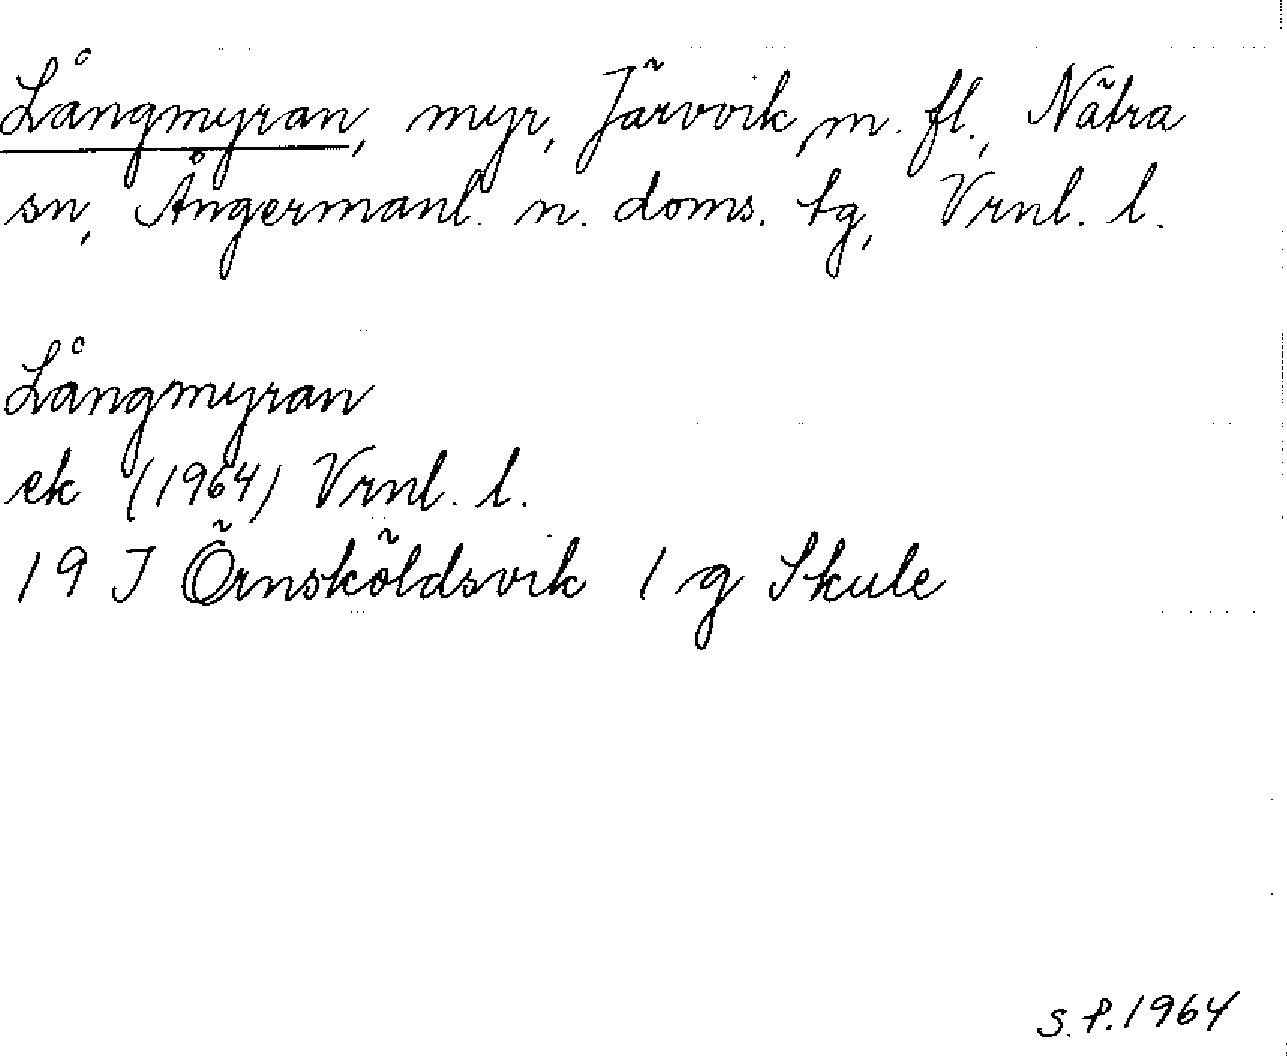 Långmyran, myr, Järvvik, m. fl., Nätra
sn, Ångermanl. n. doms. tg, Vrnl. l.
Långmyran
ek (1964) Vrnl. l.
19 J Örnsköldsvik 1 g Skule
S.P. 1964